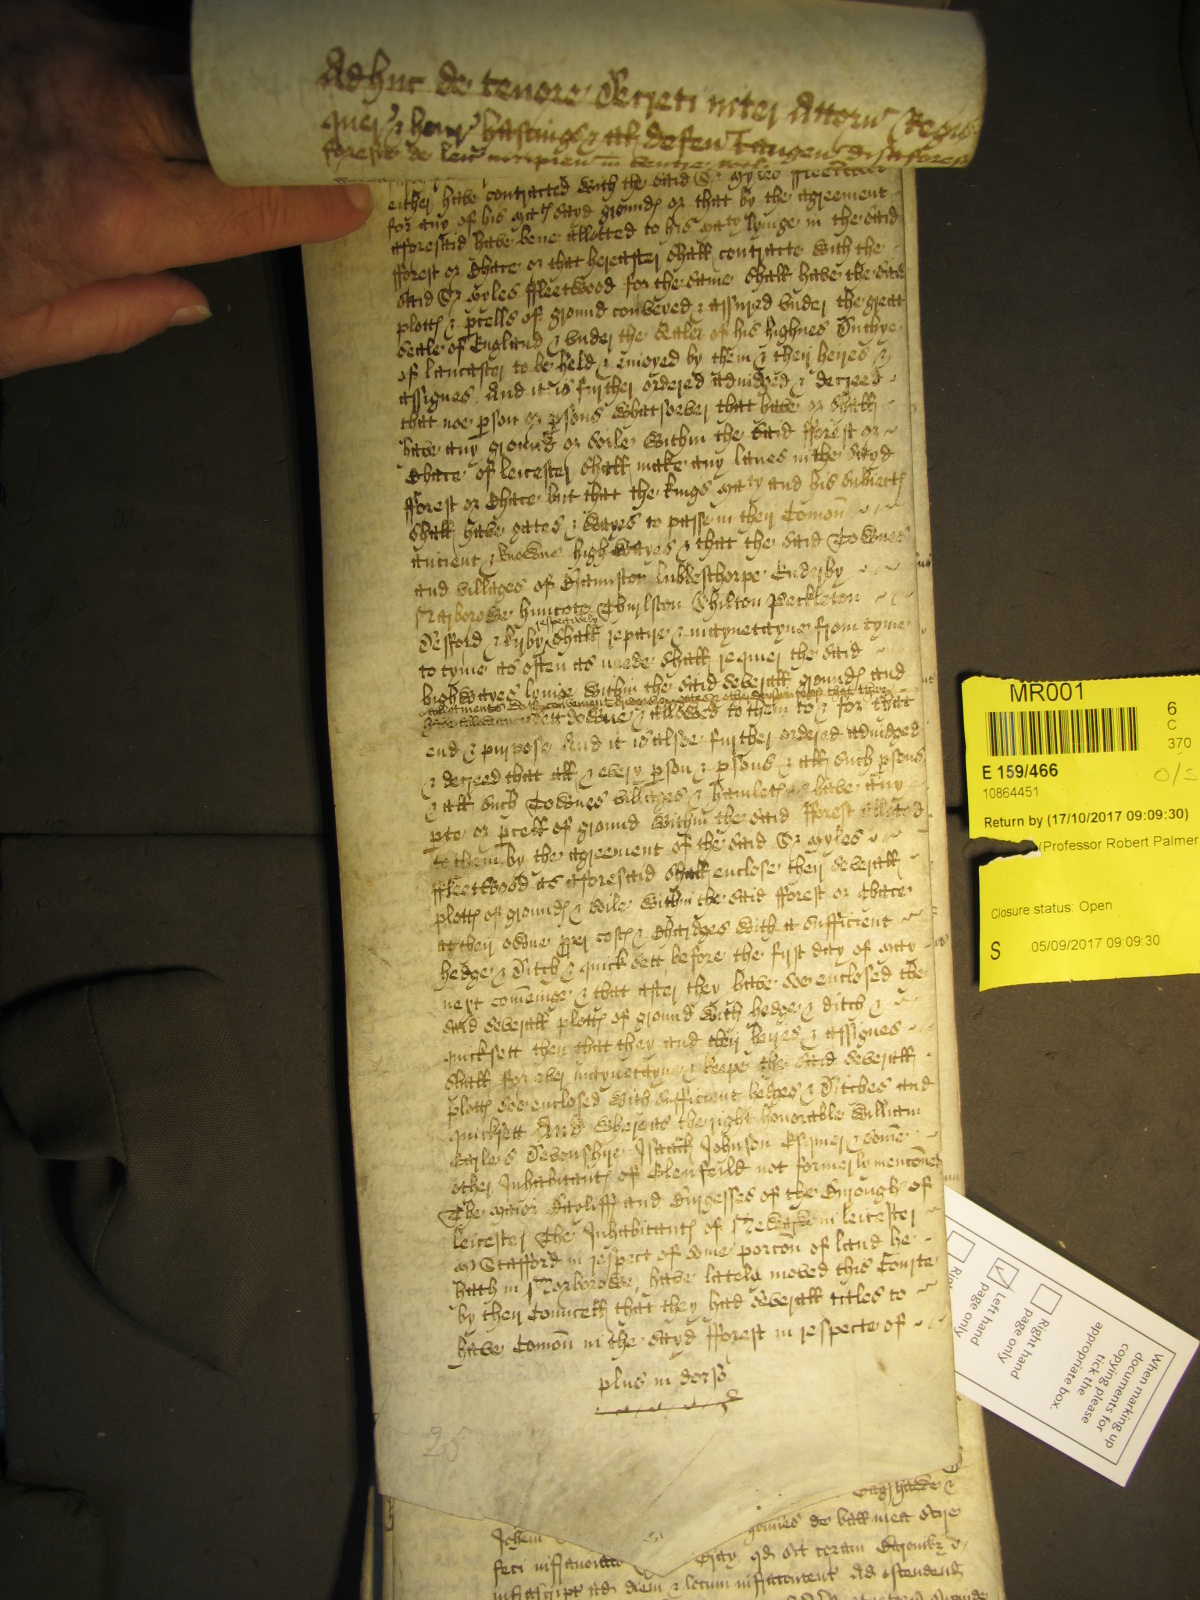 Adhuc de tenore Decreti inter Attorn Regis
quer & henr hastings & al defen Tangen disaforest
foreste de leic
either have contracted with the said Sr Myles ffleetwood
for any of his Mats sayd grounds or that by the agreement
afforesaid have bene allotted to his Maty lyinge in the said
fforest or Chace or that hereafter shall contracte with the
said Sr Myles ffleetwood for the same shall have the said
plotts & pcells of ground conveyed & assured under the great
seale of England & under the Seales of his highnes Duchye
of lancaster to be held & enioyed by them & their heires &
assignes And it is further ordered adiudged & decreed
that noe pson or psons whatsoever that have or shall
have any ground or soile within the said fforest or
Chace of leicester shall make any lanes in the sayd
fforest or Chace but that the Kings Maty and his subiects
shall have gates & wayes to passe in their Comon
ancient & knowne high wayes & that the said Townes
and villages of Braunston lubbesthorpe Enderby
Narborowe huncote Thurlston Shilton Peckleton
Desford & Kirby respectively shall repaire & maynetayne from tyme
to tyme as often as neede shall require the said
highwayes lyinge within the said severall grounds and
allotments
sett downe & allowed to them to & for that
end & purpose And it is alsoe further ordered adiudged
& decreed that all & every pson & psons & all such psons
& all such Townes villages & hamletts as have any
pte or pcell of ground within the said fforest allotted
to them by the agreement of the said Sr Myles
ffleetwood as aforesaid shall enclose their severall
plotts of grounds & soile within the said fforest or Chace
at their owne pper costs & Chardges with a sufficient
hedge & Ditch & quicksett before the first day of May
next comeinge & that after they have soe enclosed the
said severall plotts of ground with hedge & ditch &
quicksett then that they and their heires & assignes
shall for ever maynetayne & keepe the said severall
plotts soe enclosed with sufficient hedges & Ditches and
quicksett And whereas the right honorable William
Earle of Devonshire Isaack Johnson Esquier & some
other Inhabitants of Glenfeild not formerly mencioned
The Maior Bayliffs and Burgesses of the Burough of
leicester The Inhabitants of Newarke in leicester
Mr Stafford in respect of some porcon of land he
hath in Norborowe, have lately moved this Courte
by their Councell that they had severall titles to
have Comon in the sayd fforest in respecte of
plus in dorso
25
MR001
6
C
370
E 159/466
O/S
10864451
Return by (17/10/2017 09:09:30)
(Professor Robert Palmer
Closure status: Open
S 05/09/2017 09:09:30
When marking up
documents for
copying please
tick the
appropriate box.
Right hand
page only
Left hand
page only